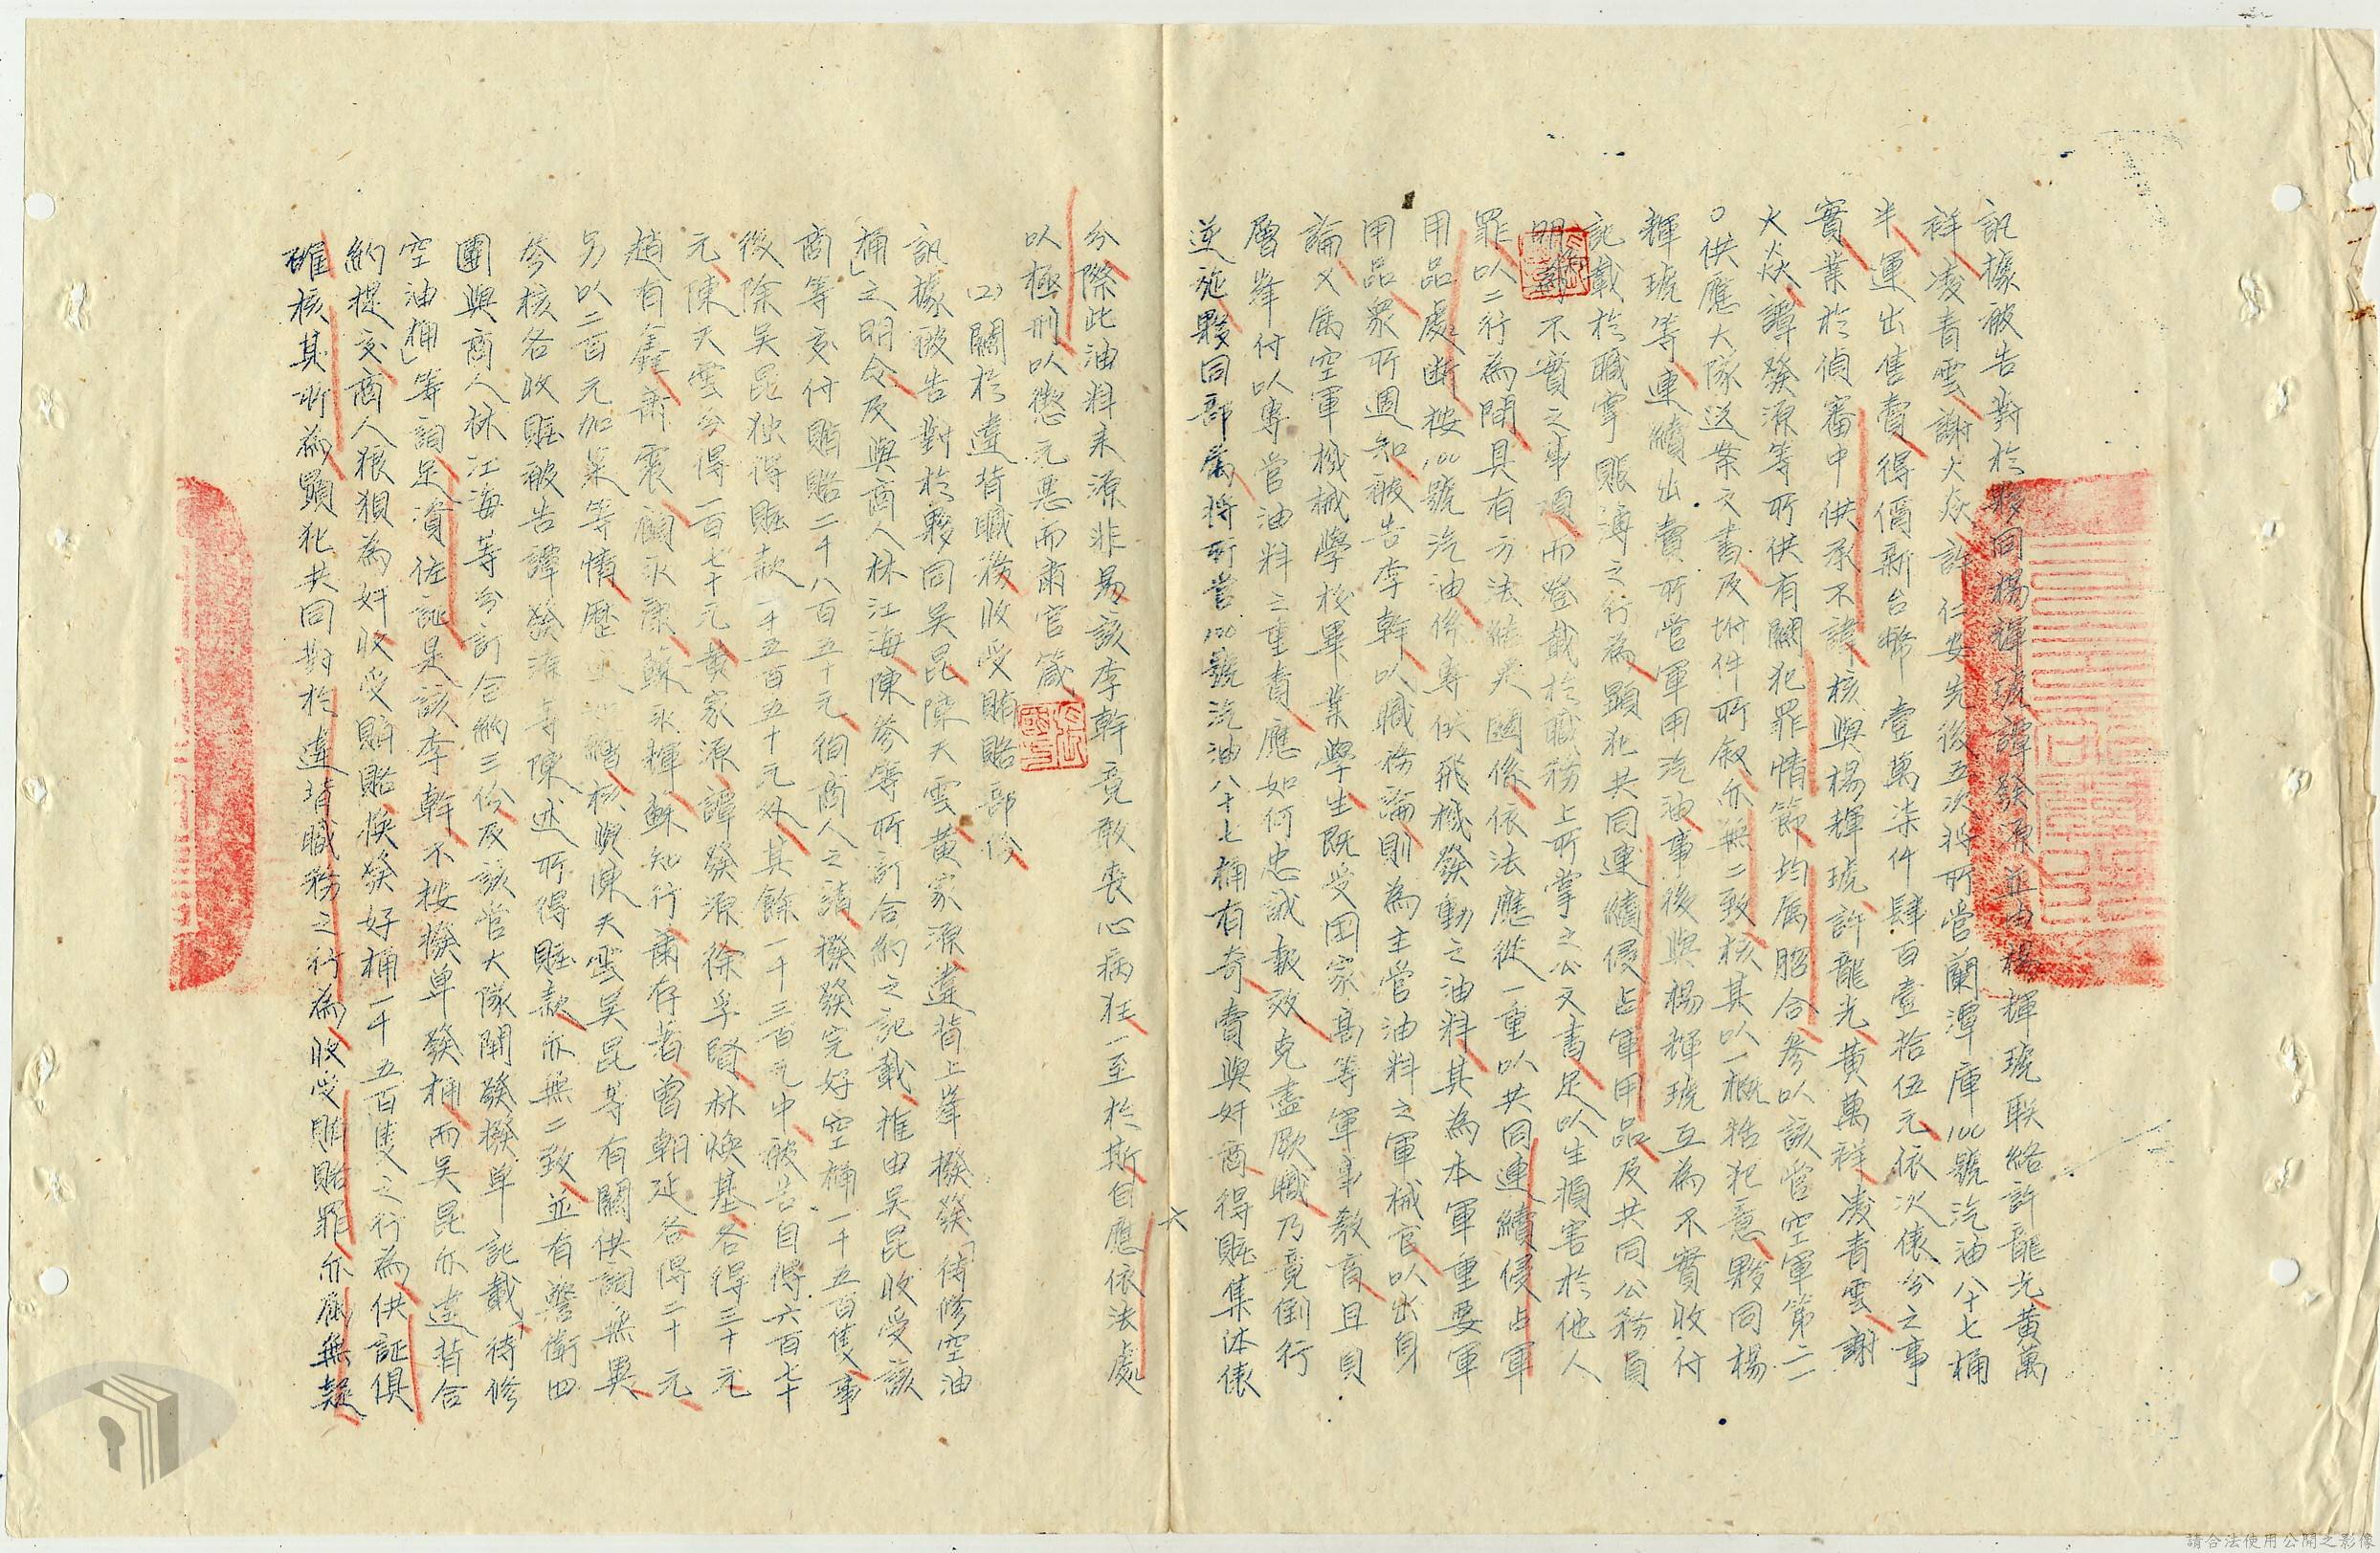 訊據被告對於夥同楊輝琥譚發源並由楊輝琥联絡許龍光黃萬
祥凌青雲謝火炎許仁安先後五次將所管蘭潭庫100號汽油八十七桶
半運出售賣得偽新台幣壹萬柒仟肆百壹拾伍元依次俵分之事
實業於偵審中供承不諱核與楊輝琥許龍光黃萬祥凌青雲謝
火炎譚發源等所供有關犯罪情節均属脗合參以該管空軍第二
〇供應大隊送案文書及附件所叙亦無二致核其以一概括犯意夥同楊
輝琥等連續出賣所管軍用汽油事後與楊輝琥互為不實收付
記載於職掌賬簿之行為顯犯共同連續侵占軍用品及共同公務員
明知不實之事項而登載於職務上所掌之公文書足以生損害於他人
罪以二行為間具有方法結果關係依法應從一重以共同連續侵占軍
用品處断按100號汽油係專供飛機發動之油料其為本軍重要軍
用品眾所週知被告李幹以職務論則為主管油料之軍械官以出身
論又属空軍機械學校畢業學生既受国家高等軍事教育且負
層峰付以專管油料之重責應如何忠誠報效克盡厥職乃竟倒行
逆施夥同部屬將所管100號汽油八十七桶有奇賣與奸商得賍集体俵
六
分際此油料來源非易該李幹竟敢喪心病狂一至於斯自應依法處
以極刑以懲元惡而肅官箴
(2)關於違背職務收受賄賂部份
訊據被告對於夥同吴昆陳天雲黃家源違背上峯撥發「待修空油
桶」之明令及與商人林江海陳參等所訂合約之記載推由吴昆收受該
商等交付賄賂二千八百五十元徇商人之請撥發完好空桶一千五百隻事
後除吴昆独得賍款一千五百五十元外其餘一千三百元中被告自得六百七十
元陳天雲分得一百七十元黃家源譚發源徐孚賢林煥基各得三十元
趙有鑫蕭震顧永康蘇永輝蘇知行蕭存著曾朝延各得二十元
另以二百元加菜等情歷核與陳天雲吴昆等有關供詞無異
參核各收賍被告譚發源等陳述所得賍款亦無二致並有警衛四
團與商人林江海等分訂合約三份及該管大隊開發撥单記載「待修
空油桶」等詞足資佐証是該李幹不按撥单發桶而吴昆亦違背合
約提交商人狼狽為奸收受賄賂換發好桶一千五百隻之行為供証俱
確核其所為顯犯共同對於違背職務之行為收受賄賂罪亦屬無疑
請合法使用公開之影像